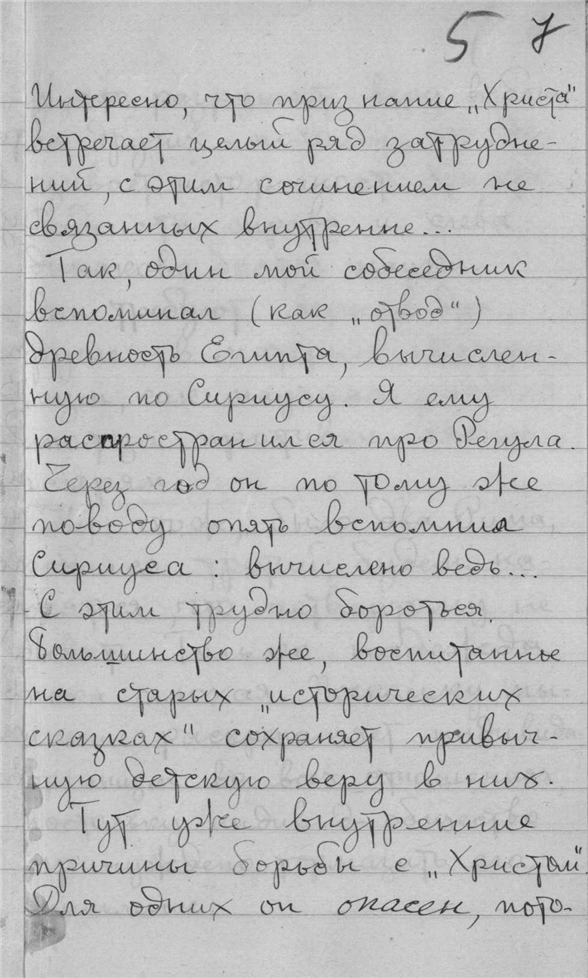 5 7
Интересно, что признание „Христа“
встречает целый ряд затрудне-
ний, с этим сочинением не
связанных внутренне...
Так, один мой собеседник
вспоминал (как „отвод“)
древность Египта, вычислен-
ную по Сириусу. Я ему
распространился про Регула.
Через год он по тому же
поводу опять вспомнил
Сириуса: вычислено ведь...
С этим трудно бороться.
Большинство же, воспитанное
на старых „исторических
сказках“ сохраняет привыч-
ную детскую веру в них.
Тут уже внутренние
причины борьбы с „Христом“.
Для одних он опасен, пото-